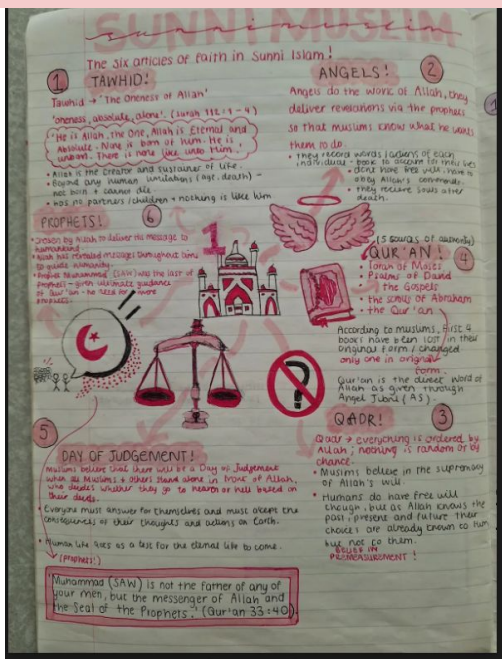 SUNNI MUSLIM
The six articles of faith in Sunni Islam!
1
TAWHID!
Tawhid → 'The Oneness of Allah'
'oneness, absolute, alone'. (Surah 112:1-4)
'He is Allah, the One, Allah is Eternal and
Absolute. None is born of Him. He is
unborn. There is none like unto Him.'
• Allah is the creator and sustainer of life.
• Beyond any human limitations (age, death) -
not born + cannot die
• has no partners/children + nothing is like him
2
ANGELS!
Angels do the work of Allah, they
deliver revelations via the prophets
so that muslims know what he wants
them to do.
• they record words/actions of each
individual - book to account for their lives
• dont have free will, have to
obey Allah's commands.
• they receive souls after
death.
6
PROPHETS!
• chosen by Allah to deliver his message to
humankind.
• Allah has revealed messages throughout time
to guide humanity.
(SAW) was the last of
prophets - given ultimate guidance
of Qur'an - no need for more
prophets.
1
(5 sources of authority)
4
QUR'AN!
• Torah of Moses
• Psalms of David
• the Gospels
• the scrolls of Abraham
• the Qur'an
According to muslims, first 4
books have been lost in their
original form / changed
only one in original
form.
Qur'an is the direct word of
Allah as given through
Angel Jibril (AS).
?
3
QADR!
Qadr → everything is ordered by
Allah; nothing is random or by
chance.
• Muslims believe in the supremacy
of Allah's will.
• Humans do have free will
though, but as Allah knows the
past, present and future their
choices are already known to him
but not to them.
BELIEF IN
PREMEASUREMENT!
5
DAY OF JUDGEMENT!
Muslims believe that there will be a Day of Judgement
when all Muslims + others stand alone in front of Allah,
who decides whether they go to heaven or hell based on
their deeds.
• Everyone must answer for themselves and must accept the
consequences of their thoughts and actions on Earth.
• Human life acts as a test for the eternal life to come.
(prophets!)
'Muhammad (SAW) is not the father of any of
your men, but the messenger of Allah and
the Seal of the Prophets.' (Qur'an 33:40)